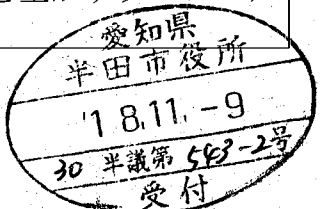 愛知県
半田市役所
'18.11.-9
30 半議第 543-2号
受付